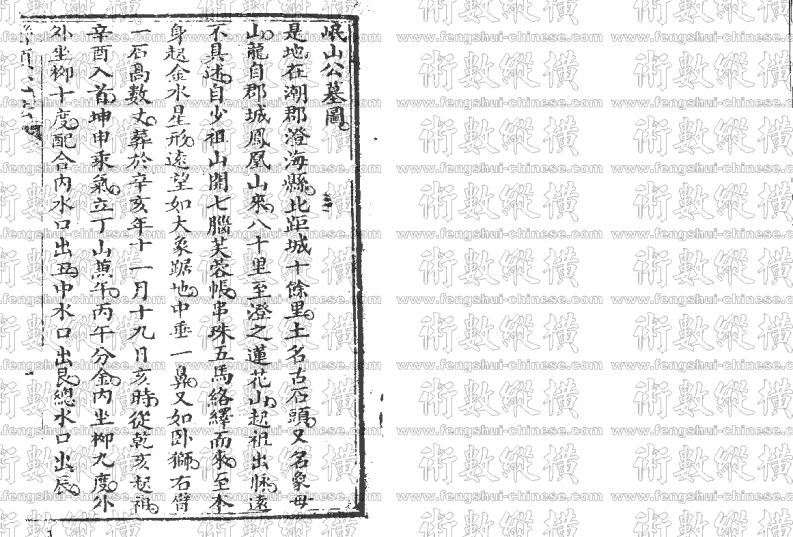 岷山公墓圖
是地在潮郡澄海縣北距城十餘里土名古石頭又名象母
山龍自郡城鳳凰山來八十里至澄之蓮花山起祖出脉遠
不具述自少祖山開七腦芙蓉帳串珠五馬絡繹而來至本
身起金水星形遠望如大象踞地中垂一鼻又如卧獅右臂
一石高數丈葬於辛亥年十一月十九日亥時從乾亥起祖
辛酉入首坤申乘氣立丁山兼午丙午分金內坐柳九度外
外坐柳十度配合內水口出丑中水口出艮總水口出辰
術數縱橫
www.fengshui-chinese.com